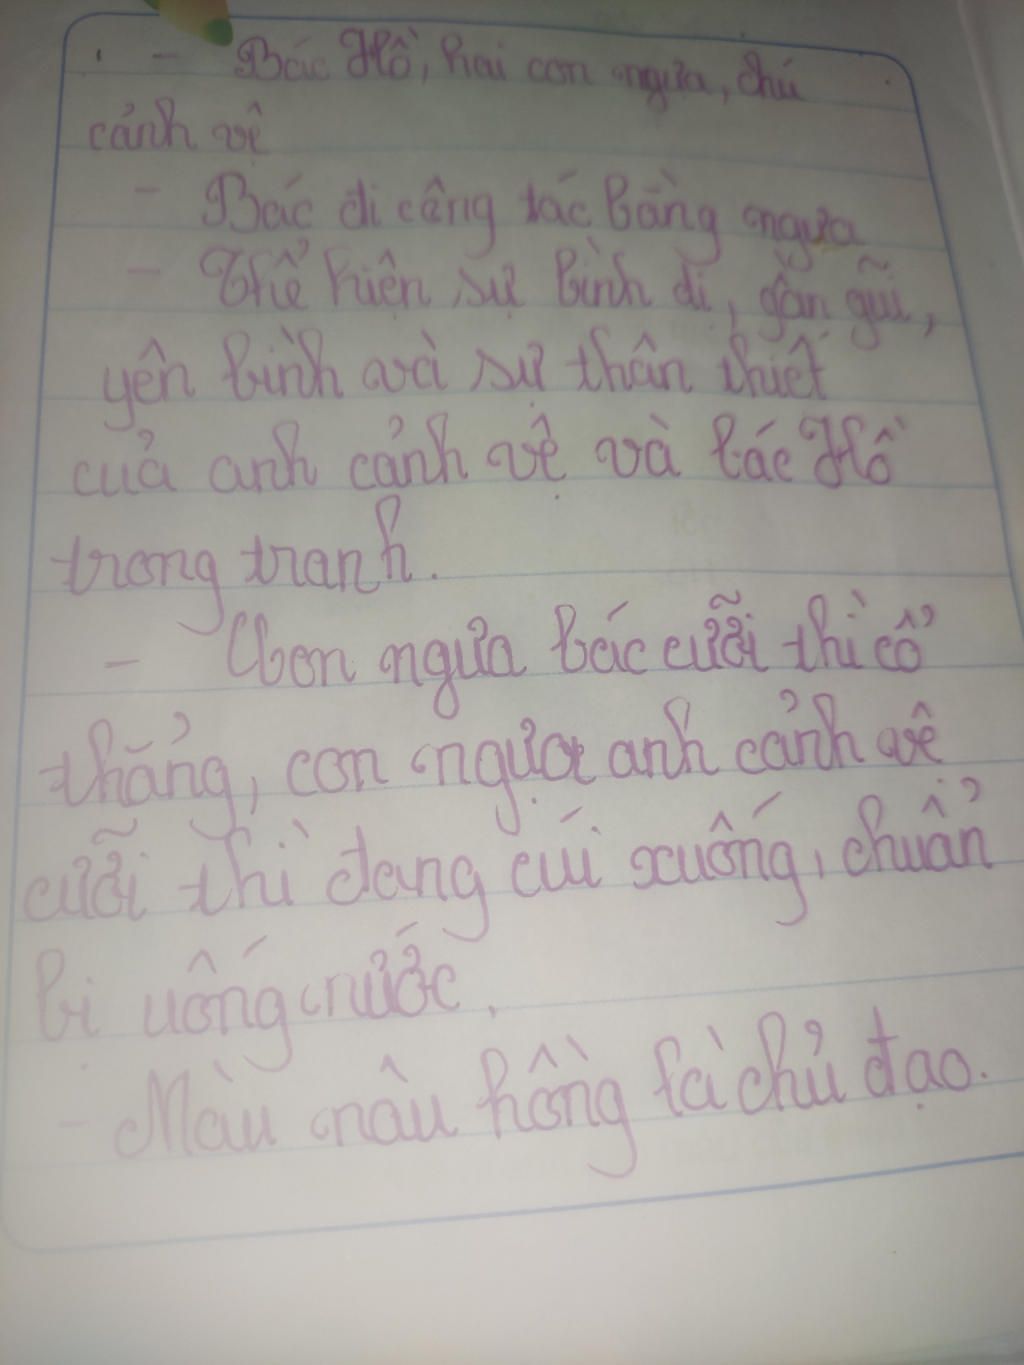 - Bác Hồ, hai con ngựa, chú
cảnh vệ
- Bác đi công tác bằng ngựa
- Thể hiện sự bình dị, gần gũi,
yên bình và sự thân thiết
của anh cảnh vệ và bác Hồ
trong tranh.
- Con ngựa bác cưỡi thì cổ
thẳng, con ngựa anh cảnh vệ
cưỡi thì đang cúi xuống, chuẩn
bị uống nước.
- Màu nâu hồng là chủ đạo.